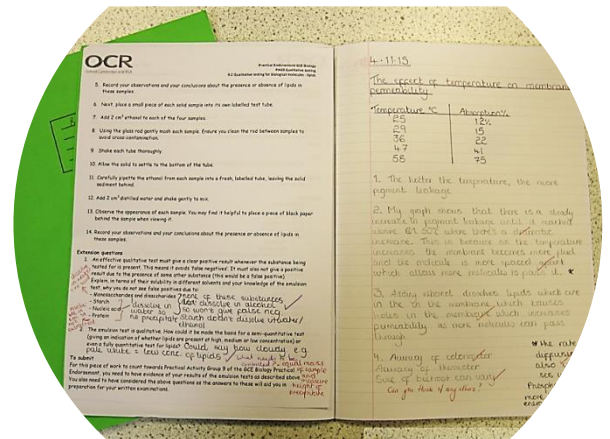 OCR
Practical Endorsement GCE Biology
PAG9 Qualitative testing
9.2 Qualitative testing for biological molecules - lipids
5. Record your observations and your conclusions about the presence or absence of lipids in
these samples.
6. Next, place a small piece of each solid sample into its own labelled test tube.
7. Add 2 cm³ ethanol to each of the four samples.
8. Using the glass rod gently mash each sample. Ensure you clean the rod between samples to
avoid cross contamination.
9. Shake each tube thoroughly.
10. Allow the solid to settle to the bottom of the tube.
11. Carefully pipette the ethanol from each sample into a fresh, labelled tube, leaving the solid
sediment behind.
12. Add 2 cm³ distilled water and shake gently to mix.
13. Observe the appearance of each sample. You may find it helpful to place a piece of black paper
behind the sample when viewing it.
14. Record your observations and your conclusions about the presence or absence of lipids in
these samples.
Extension questions
1. An effective qualitative test must give a clear positive result whenever the substance being
tested for is present. This means it must avoid 'false negatives'. It must also not give a positive
result due to the presence of some other substance (this would be a false positive).
Explain, in terms of their solubility in different solvents and your knowledge of the emulsion
test, why you do not see false positives due to:
- Monosaccharides and disaccharides
- Starch
- Nucleic acids
- Protein
dissolve in
water so
no precipitate
none of these substances
dissolve in alcohol
so won't give false neg
Starch doesn't dissolve in water/
ethanol
2. The emulsion test is qualitative. How could it be made the basis for a semi-quantitative test
(giving an indication of whether lipids are present at high, medium or low concentration) or
even a fully quantitative test for lipids?
Could say how cloudy e.g
pale white = low conc. of lipids
equal mass
and
measure
height of
precipitate
To submit
For this piece of work to count towards Practical Activity Group 9 of the GCE Biology Practical
Endorsement, you need to have evidence of your results of the emulsion tests as described above.
You also need to have considered the above questions as the answers to these will aid you in
preparation for your written examinations.
4.11.15
The effect of temperature on membrane
permeability
Temperature °C Absorption %
25 12
29 15
36 22
47 41
55 75
1. The hotter the temperature, the more
pigment leakage.
2. My graph shows that there is a steady
increase in pigment leakage until it reached
above 50°C where there's a dramatic
increase. This is because as the temperature
increases the membrane becomes more fluid
and the molecule is more spaced apart
which allows more molecules to pass it. *
3. Adding ethanol dissolves lipids which are
in the membrane which causes
holes in the membrane which increases
permeability as more molecules can pass
through.
4. Accuracy of colorimeter
Accuracy of thermometer
Size of beetroot can vary
Can you think of any others?
* the rate
diffusion
also
see
more